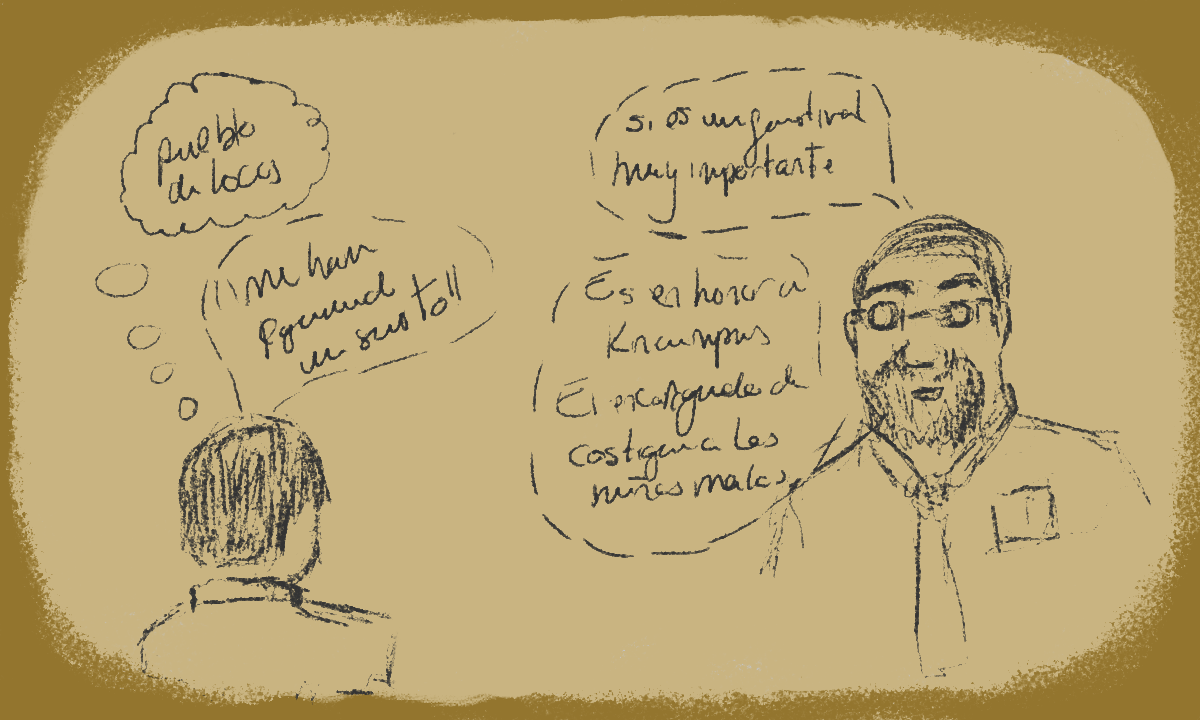 pueblo
de locos
"me han
pegado
un susto"
si es un festival
muy importante
Es en honor a
Krampus
El encargado de
castigar a los
niños malos